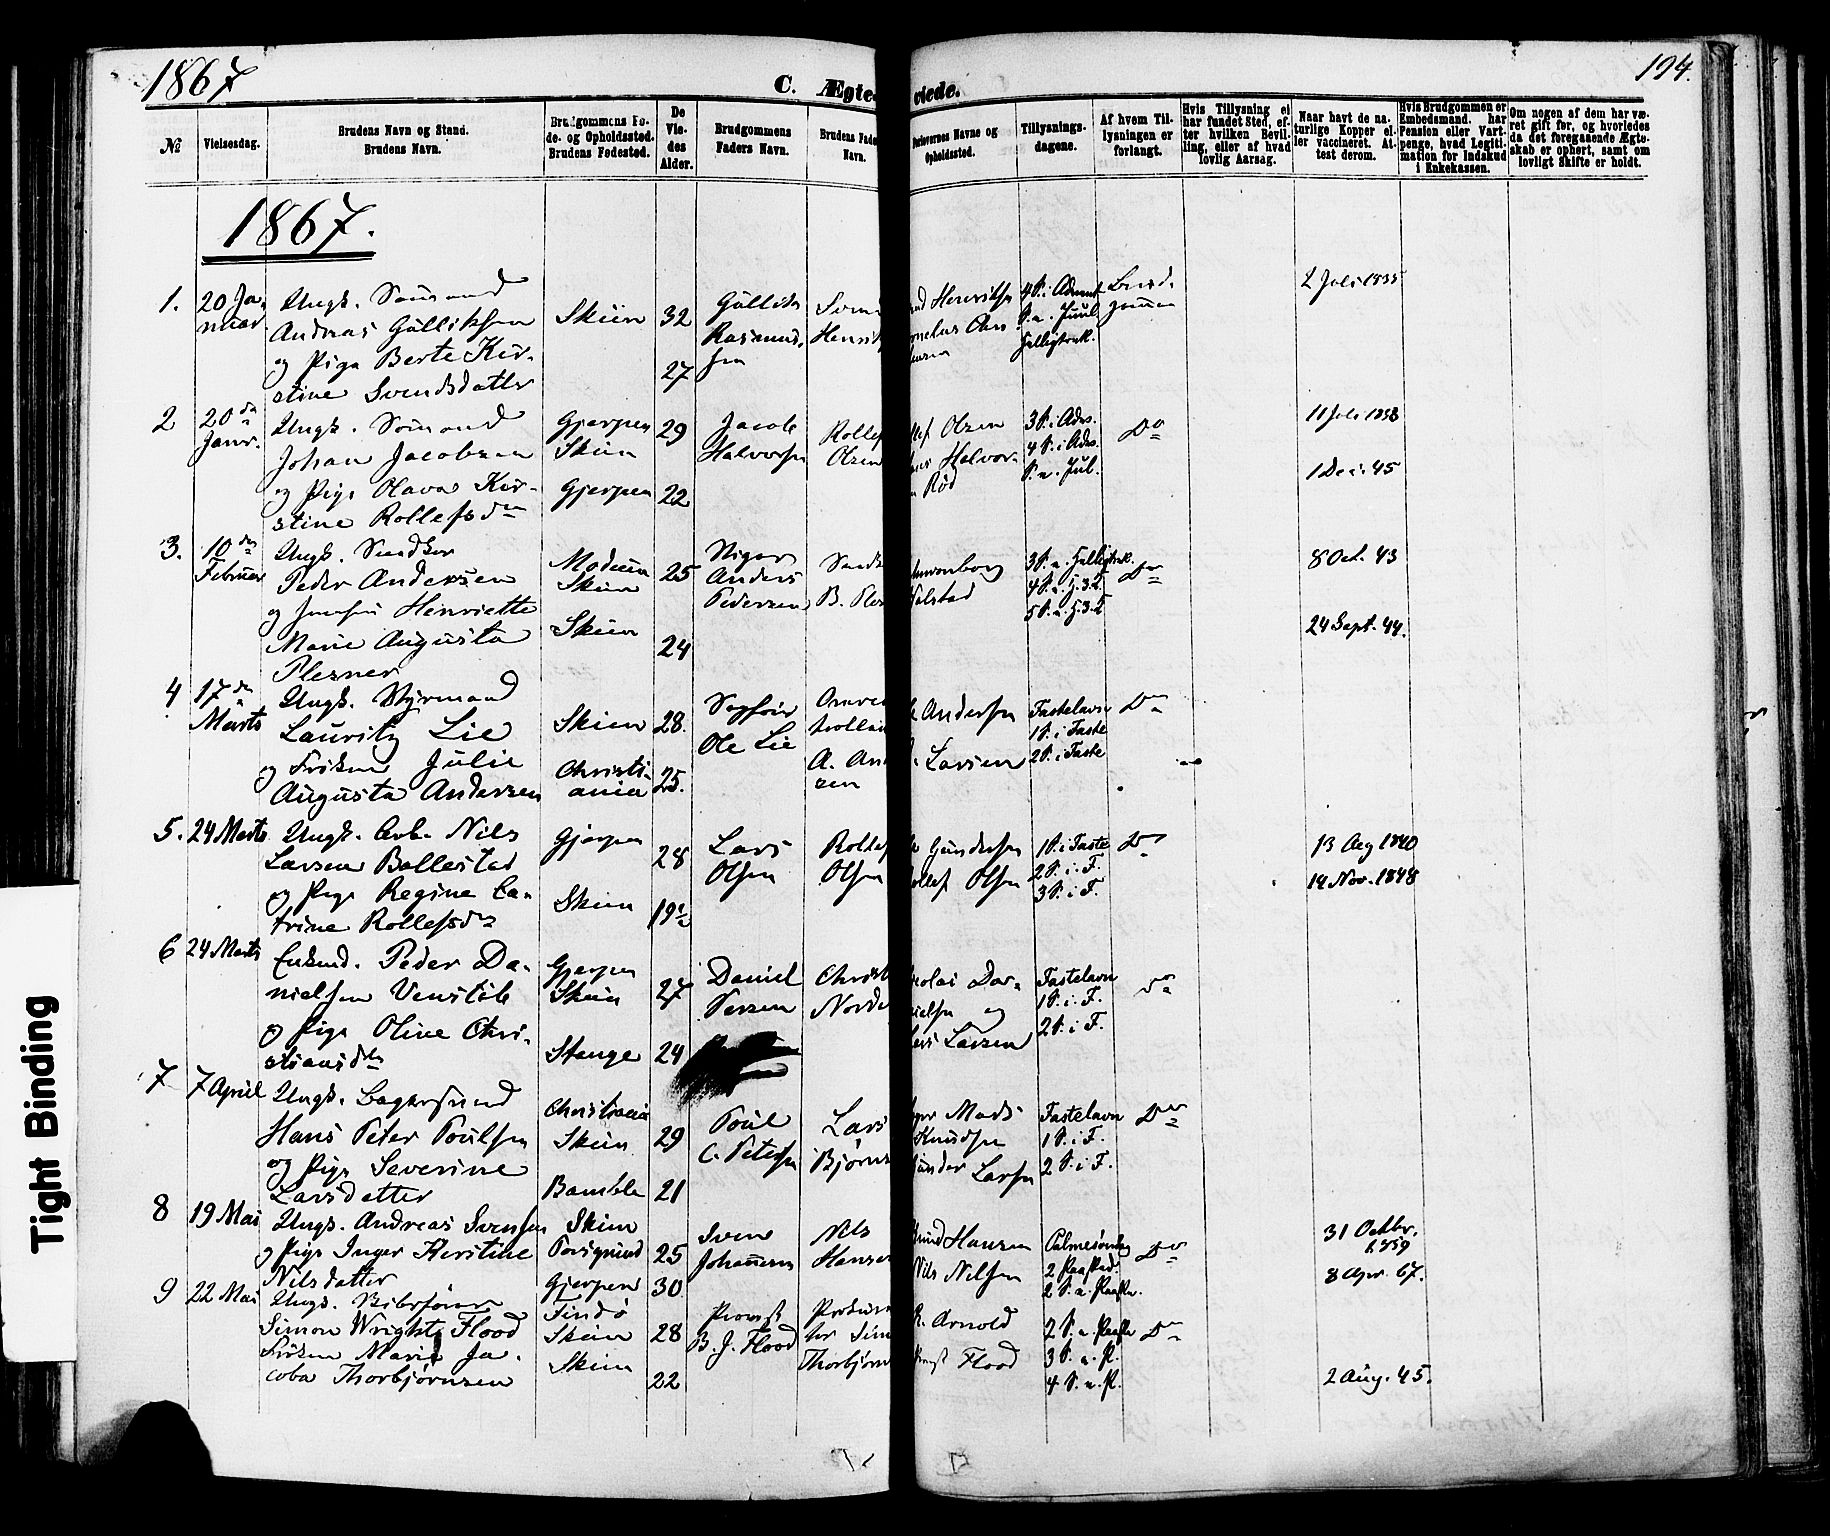 1867
C. Ægte
viede.
194.
№
Vielsesdag.
Brudens Navn og Stand.
Brudens Navn.
Brudgommens Fø-
de- og Opholdssted.
Brudens Fødested.
De
Vie-
des
Alder.
Brudgommens
Faders Navn.
Brudens Fad
Navn.
Forlovernes Navne og
Opholdssted.
Tillysnings-
dagene.
Af hvem Til-
lysningen er
forlangt.
Hvis Tillysning ej
har fundet Sted, ef-
ter hvilken Bevil-
ling, eller af hvad
lovlig Aarsag.
Naar havt de na-
turlige Kopper el-
ler vaccineret. At-
test derom.
Hvis Brudgommen er
Embedsmand, har
Pension eller Vart-
penge, hvad Legiti-
mation for Indskud
i Enkekassen.
Om nogen af dem har væ-
ret gift før, og hvorledes
da det foregaaende Ægte-
skab er ophørt, samt om
lovligt Skifte er holdt.
1867.
1.
20 Ja-
nuar
Ungk. Sømand
Andreas Gulliksen
og Pige Berte Kir-
stine Svendsdatter
Skien
32
27
Gullik
Rasmus-
sen
Svend
Henrik
nd Henriksen
4 S. i Advent
S. a. Juul
Brud-
gommen
2 Juli 1835
2
20de
Janr.
Ungk. Sømand
Johan Jacobsen
og Pige Olava Kir-
stine Rollefsdr
Gjerpen
Skien
Gjerpen
29
22
Jacob
Halvorsen
Rollef
Olsen
lef Olsen
Halvor-
n Rød
3 S. i Adv.
4 S. i Adv.
S. a. Jul.
Do
11 Juli 1838
1 Dec. 45
3.
10de
Februar
Ungk. Snedker
Peder Andersen
og Jomfru Henriette
Marie Augusta
Plesner
Modum
Skien
Skien
25
24
Anders
Pedersen
Snedk
B. Ples
Halstad
3 S. a. Helligtrek.
4 S. a. H. 3. K
5 S. a. H. 3. K
Do
8 Oct. 43
24 Sept. 44.
4
17de
Marts
Ungk. Styrmand
Lauritz Lie
og Frøken Julie
Augusta Andersen
Skien
Christi-
ania
28.
25.
Ole Lie
A. An
sen
Andersen
Larsen
Fastelavn
1 S. i Faste
2 S. i Faste
Do
5.
24 Marts
Ungk. Arb. Nils
Larsen Bollestad
og Pige Regine Ca-
trine Rollefsdr
Gjerpen
Skien
28
19½
Lars
Olsen
Rollef
Olsen
Gundersen
ollef Olsen
1 S. i Faste
2 S. i. F.
3 S. i F.
Do
13 Aug 1840
14 Nov. 1848
6
24 Marts
Enkmd. Peder Da-
nielsen Venstøb
og Pige Oline Chri-
stiansdtr
Gjerpen
Skien
Stange
27
24
Daniel
Christ
Norde
colai Da-
nielsen og
Larsen
Fastelavn
1 S. i. F.
2 S. i F.
Do
7
7 April
Ungk. Bagersvend
Hans Peter Poulsen
og Pige Severine
Larsdatter
Christiania
Skien
Bamble
29
21
Poul
C. Petersen
Lars
Bjørns
Mads
Knudsen
under Larsen
Fastelavn
1 S. i F.
2 S. i F.
Do
8
19 Mai
Ungk. Andreas Svensen
og Pige Inger Kirstine
Nilsdatter
Skien
Porsgrund
Gjerpen
25
30
Sven
Johannesen
Nils
Hansen
Hansen
Nils Nilsen
Palmesøndag
2 Paaskd.
2 S. a. Paaske.
Do
31 Octbr.
1859
8 Apr. 67.
9
22 Mai
Ungk.
Simon Wright Flood
Frøken Marie Ja-
coba Thorbjørnsen
Findø
Skien
Skien
28
22
Provst
B. J. Flood
Prokura
tor Sim
Thorbjørn
R. Arnold
Flood
2 S. a. Paaske
3 S. a. P.
4 S. a. P.
Do
2 Aug. 45.
Tight Binding